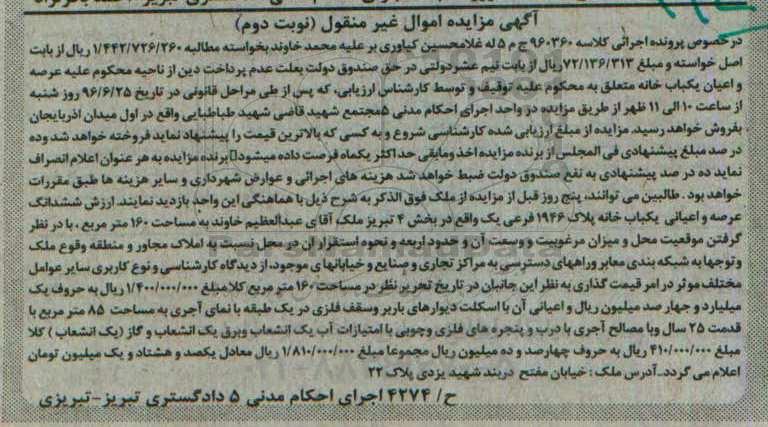 آگهی مزایده اموال غیر منقول (نوبت دوم)
در خصوص پرونده اجرائی کلاسه ۹۶۰۳۶۰ ج م ۵ له غلامحسین کیاوری بر علیه محمد خاوند بخواسته مطالبه ۱/۴۴۲/۷۲۶/۲۶۰ ریال از بابت
اصل خواسته و مبلغ ۷۲/۱۳۶/۳۱۳ ریال از بابت نیم عشر دولتی در حق صندوق دولت بعلت عدم پرداخت دین از ناحیه محکوم علیه عرصه
و اعیان یکباب خانه متعلق به محکوم علیه توقیف و توسط کارشناس ارزیابی، که پس از طی مراحل قانونی در تاریخ ۹۶/۶/۲۵ روز شنبه
از ساعت ۱۰ الی ۱۱ ظهر از طریق مزایده در واحد اجرای احکام مدنی ۵مجتمع شهید قاضی شهید طباطبایی واقع در اول میدان آذربایجان
بفروش خواهد رسید. مزایده از مبلغ ارزیابی شده کارشناسی شروع و به کسی که بالاترین قیمت را پیشنهاد نماید فروخته خواهد شد وده
در صد مبلغ پیشنهادی فی المجلس از برنده مزایده اخذ ومابقی حداکثر یکماه فرصت داده میشود برنده مزایده به هر عنوان اعلام انصراف
نماید ده در صد پیشنهادی به نفع صندوق دولت ضبط خواهد شد هزینه های اجرائی و عوارض شهرداری و سایر هزینه ها طبق مقررات
خواهد بود . طالبین می توانند، پنج روز قبل از مزایده از ملک فوق الذکر به شرح ذیل با هماهنگی این واحد بازدید نمایند. ارزش ششدانگ
عرصه و اعیانی یکباب خانه پلاک ۱۹۴۶ فرعی یک واقع در بخش ۴ تبریز ملک آقای عبدالعظیم خاوند به مساحت ۱۶۰ متر مربع ، با در نظر
گرفتن موقعیت محل و میزان مرغوبیت و وسعت آن و حدود اربعه و نحوه استقرار آن در محل نسبت به املاک مجاور و منطقه وقوع ملک
و توجها به شبکه بندی معابر وراههای دسترسی به مراکز تجاری و صنایع و خیابانهای موجود، از دیدگاه کارشناسی و نوع کاربری سایر عوامل
مختلف موثر در امر قیمت گذاری به نظر این جانبان در تاریخ تحریر نظر در مساحت ۱۶۰ متر مربع کلا مبلغ ۱/۴۰۰/۰۰۰/۰۰۰ ریال به حروف یک
میلیارد و چهار صد میلیون ریال و اعیانی آن با اسکلت دیوارهای باربر وسقف فلزی در یک طبقه با نمای آجری به مساحت ۸۵ متر مربع با
قدمت ۲۵ سال وبا مصالح آجری با درب و پنجره های فلزی وچوبی با امتیازات آب یک انشعاب وبرق یک انشعاب و گاز (یک انشعاب ) کلا
مبلغ ۴۱۰/۰۰۰/۰۰۰ ریال به حروف چهارصد و ده میلیون ریال مجموعا مبلغ ۱/۸۱۰/۰۰۰/۰۰۰ ریال معادل یکصد و هشتاد و یک میلیون تومان
اعلام می گردد.آدرس ملک : خیابان مفتح دربند شهید یزدی پلاک ۲۲
ح/ ۴۲۷۴ اجرای احکام مدنی ۵ دادگستری تبریز-تبریزی